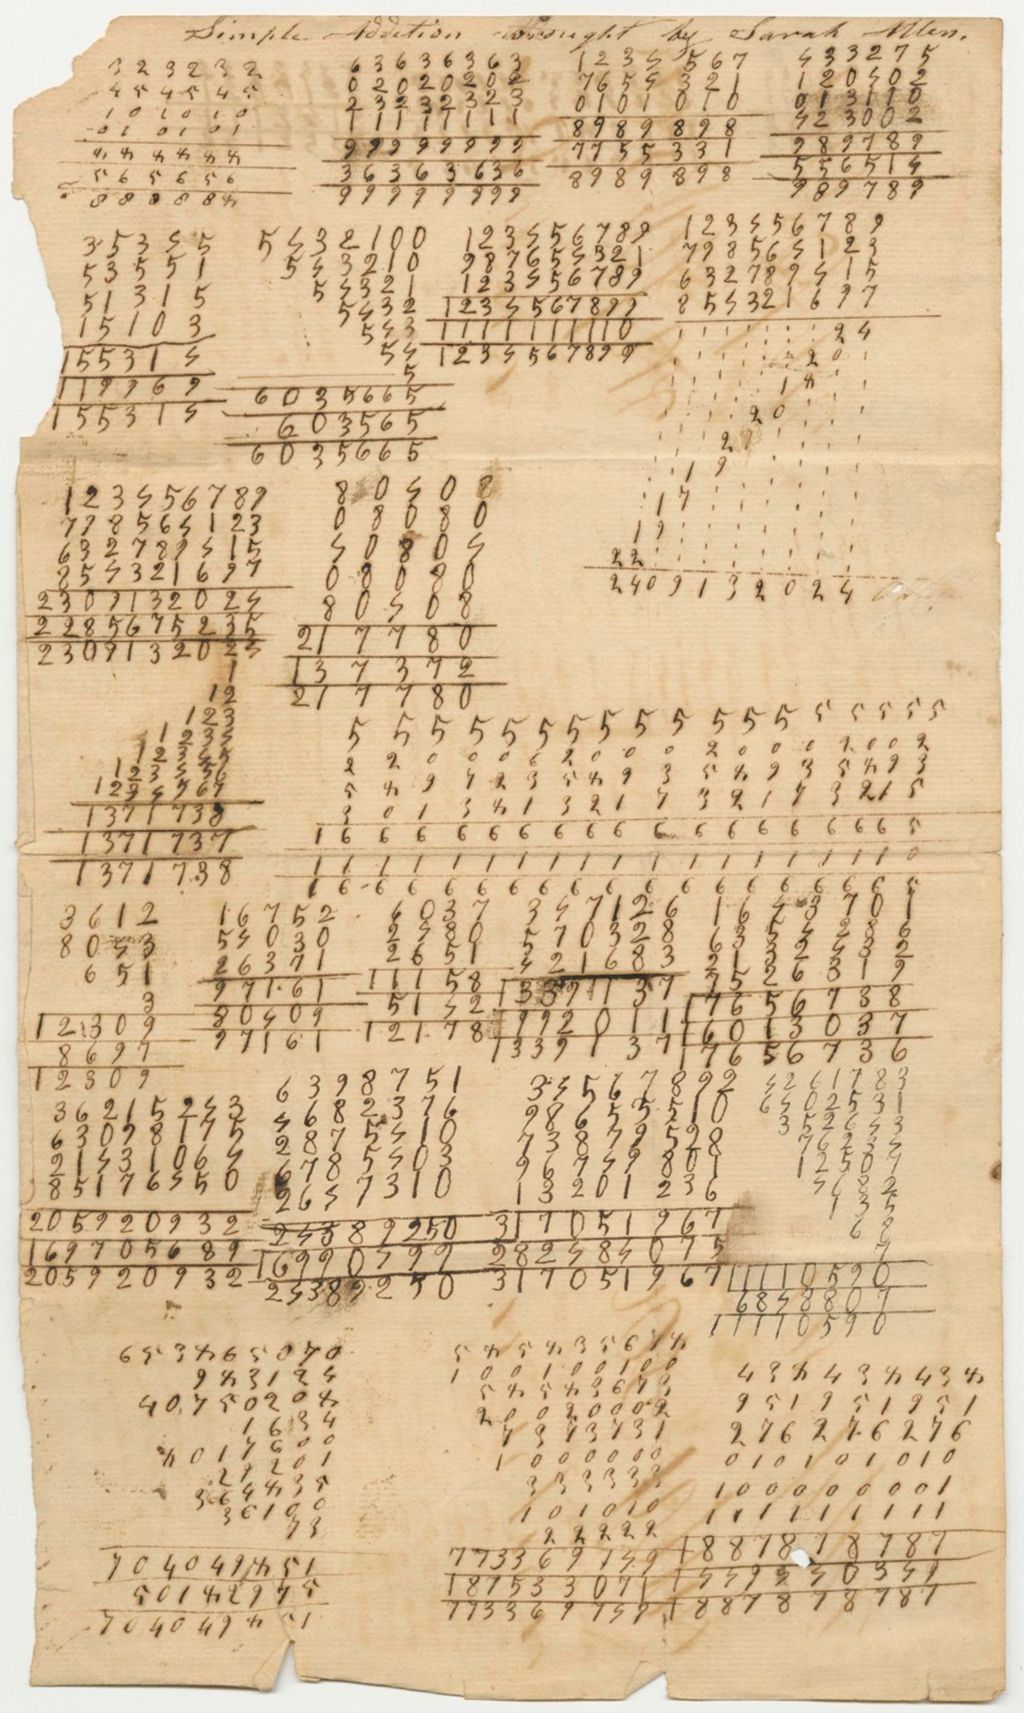 Simple Addition wrought by Sarah Allen.
3 2 3 2 3 2
4 5 4 5 4 5
1 0 1 0 1 0
0 1 0 1 0 1
5 6 5 6 5 6
6 3 6 3 6 3 6 3
0 2 0 2 0 2 0 2
2 3 2 3 2 3 2 3
1 1 1 1 1 1 1 1
9 9 9 9 9 9 9 9
3 6 3 6 3 6 3 6
9 9 9 9 9 9 9 9
1 2 3 4 5 6 7
7 6 5 4 3 2 1
0 1 0 1 0 1 0
8 9 8 9 8 9 8
7 7 5 5 3 3 1
8 9 8 9 8 9 8
4 3 3 2 7 5
1 2 0 4 0 2
0 1 3 1 1 0
4 2 3 0 0 2
9 8 9 7 8 9
5 5 6 5 1 4
9 8 9 7 8 9
3 5 3 4 5
5 3 5 5 1
5 1 3 1 5
1 5 1 0 3
1 5 5 3 1 4
1 1 9 9 6 9
1 5 5 3 1 4
5 4 3 2 1 0 0
5 4 3 2 1 0
5 4 3 2 1
5 4 3 2
5 4 3
5 4
5
6 0 3 5 6 6 5
6 0 3 5 6 5
6 0 3 5 6 6 5
1 2 3 4 5 6 7 8 9
9 8 7 6 5 4 3 2 1
1 2 3 4 5 6 7 8 9
1 2 3 4 5 6 7 8 9 9
1 1 1 1 1 1 1 1 1 0
1 2 3 4 5 6 7 8 9 9
1 2 3 4 5 6 7 8 9
7 9 8 5 6 4 1 2 3
6 3 2 7 8 9 4 1 5
8 5 4 3 2 1 6 9 7
2 4
2 0
1 4
2 0
2 7
1 9
1 7
1 9
2 2
2 4 0 9 1 3 2 0 2 4
1 2 3 4 5 6 7 8 9
7 9 8 5 6 4 1 2 3
6 3 2 7 8 9 4 1 5
8 5 4 3 2 1 6 9 7
2 3 0 9 1 3 2 0 2 4
2 2 8 5 6 7 5 2 3 5
2 3 0 9 1 3 2 0 2 4
8 0 4 0 8
0 8 0 8 0
4 0 8 0 4
0 8 0 8 0
8 0 4 0 8
2 1 7 7 8 0
1 3 7 3 7 2
2 1 7 7 8 0
1
1 2
1 2 3
1 2 3 4
1 2 3 4 5
1 2 3 4 5 6
1 2 3 4 5 6 7
1 3 7 1 7 3 8
1 3 7 1 7 3 7
1 3 7 1 7 3 8
5 5 5 5 5 5 5 5 5 5 5 5 5 5 5 5 5 5
2 2 0 0 6 2 0 0 0 2 0 0 0 2 0 0 2
5 4 9 7 2 3 5 4 9 3 5 4 9 3 5 4 9 3
3 0 1 3 4 1 3 2 1 7 3 2 1 7 3 2 1 5
1 6 6 6 6 6 6 6 6 6 6 6 6 6 6 6 6 6 5
1 1 1 1 1 1 1 1 1 1 1 1 1 1 1 1 1 0
1 6 6 6 6 6 6 6 6 6 6 6 6 6 6 6 6 6 5
3 6 1 2
8 0 4 3
6 5 1
3
1 2 3 0 9
8 6 9 7
1 2 3 0 9
1 6 7 5 2
5 4 0 3 0
2 6 3 7 1
9 7 1 6 1
8 0 4 0 9
9 7 1 6 1
4 0 3 7
2 4 8 0
2 6 5 1
1 1 1 5 8
5 1 4 2
1 2 1 7 8
3 4 7 1 2 6
5 7 0 3 2 8
4 2 1 6 8 3
1 3 3 9 1 3 7
9 9 2 0 1 1
1 3 3 9 1 3 7
1 6 4 3 7 0 1
7 5 2 6 3 1 9
1 7 6 5 6 7 3 8
6 0 1 3 0 3 7
1 7 6 5 6 7 3 6
3 6 2 1 5 2 4 3
6 3 0 9 8 1 7 5
2 1 4 3 1 0 6 4
8 5 1 7 6 4 5 0
2 0 5 9 2 0 9 3 2
1 6 9 7 0 5 6 8 9
2 0 5 9 2 0 9 3 2
6 3 9 8 7 5 1
4 6 8 2 3 7 6
2 8 7 5 4 1 0
6 7 8 5 4 0 3
2 6 4 7 3 1 0
2 4 3 8 9 2 5 0
1 6 9 9 0 4 9 9
2 4 3 8 9 2 5 0
3 4 5 6 7 8 9 2
9 8 6 5 5 5 1 0
7 3 8 4 9 5 2 8
9 6 7 4 9 8 0 1
1 3 2 0 1 2 3 6
3 1 7 0 5 1 9 6 7
2 8 2 4 8 4 0 7 5
3 1 7 0 5 1 9 6 7
6
7
1 1 1 1 0 5 9 0
6 8 4 8 8 0 7
1 1 1 1 0 5 9 0
6 5 3 4 6 5 0 7 0
9 4 3 1 2 4
4 0 7 5 0 2 0 4
1 6 3 4
4 0 1 7 6 0 0
2 9 2 0 1
3 6 4 4 3 5
3 6 1 0 0
7 3
7 0 4 0 4 9 4 5 1
5 0 1 4 2 9 7 5
7 0 4 0 4 9 4 5 1
5 4 5 4 3 5 6 7 4
1 0 0 1 0 0 1 0 0
5 4 5 4 3 6 7 3
2 0 0 2 0 0 0 2
7 3 7 3 7 3 1
1 0 0 0 0 0 0
3 3 3 3 3 3
1 0 1 0 1 0
2 2 2 2 2
7 7 3 3 6 9 7 4 9
1 8 7 5 3 3 0 7 1
7 7 3 3 6 9 7 4 9
4 3 4 4 3 4 4 3 4
9 5 1 9 5 1 9 5 1
2 7 6 2 7 6 2 7 6
0 1 0 1 0 1 0 1 0
1 0 0 0 0 0 0 0 1
1 1 1 1 1 1 1 1 1
1 8 8 7 8 7 8 7 8 7
1 4 4 9 4 4 0 3 4 9
1 8 8 7 8 7 8 7 8 7